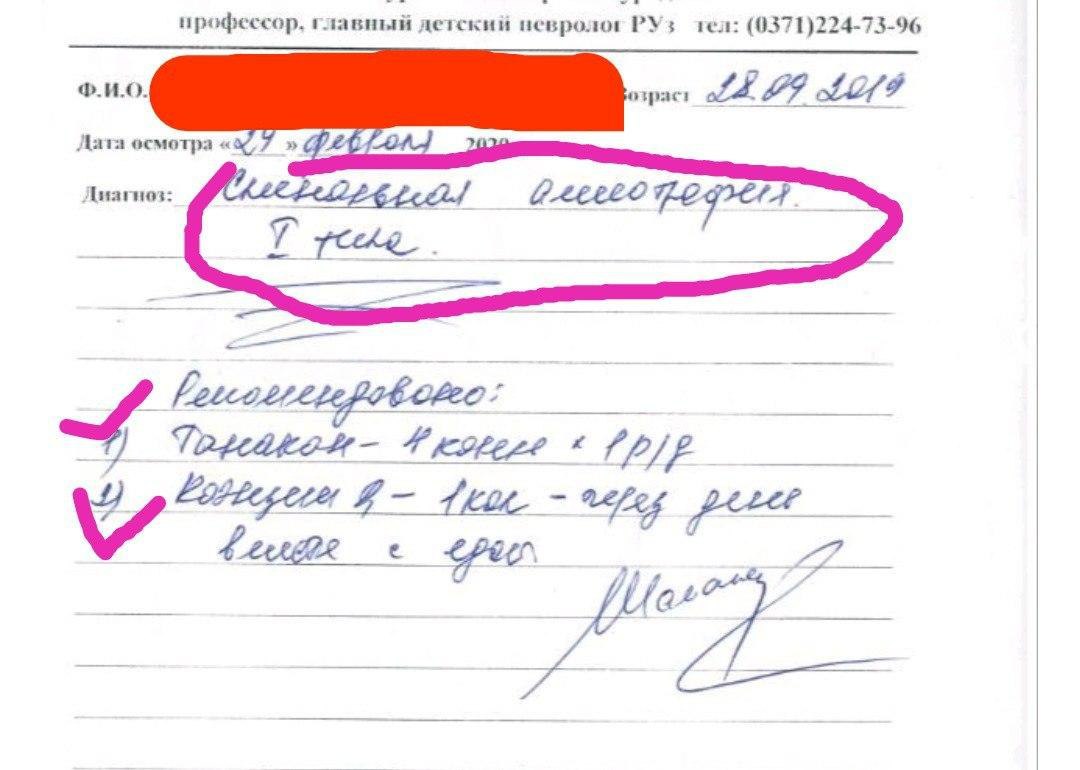 профессор, главный детский невролог РУз тел: (0371)224-73-96
Ф.И.О. Возраст 28.09.2019
Дата осмотра «24» февраля 2020
Диагноз: Спинальная амиотрофия.
I типа.
Рекомендовано:
1) Танакан - 4 капли × 1 р/д
2) Коэнзим Q - 1 кап - через день
вместе с едой